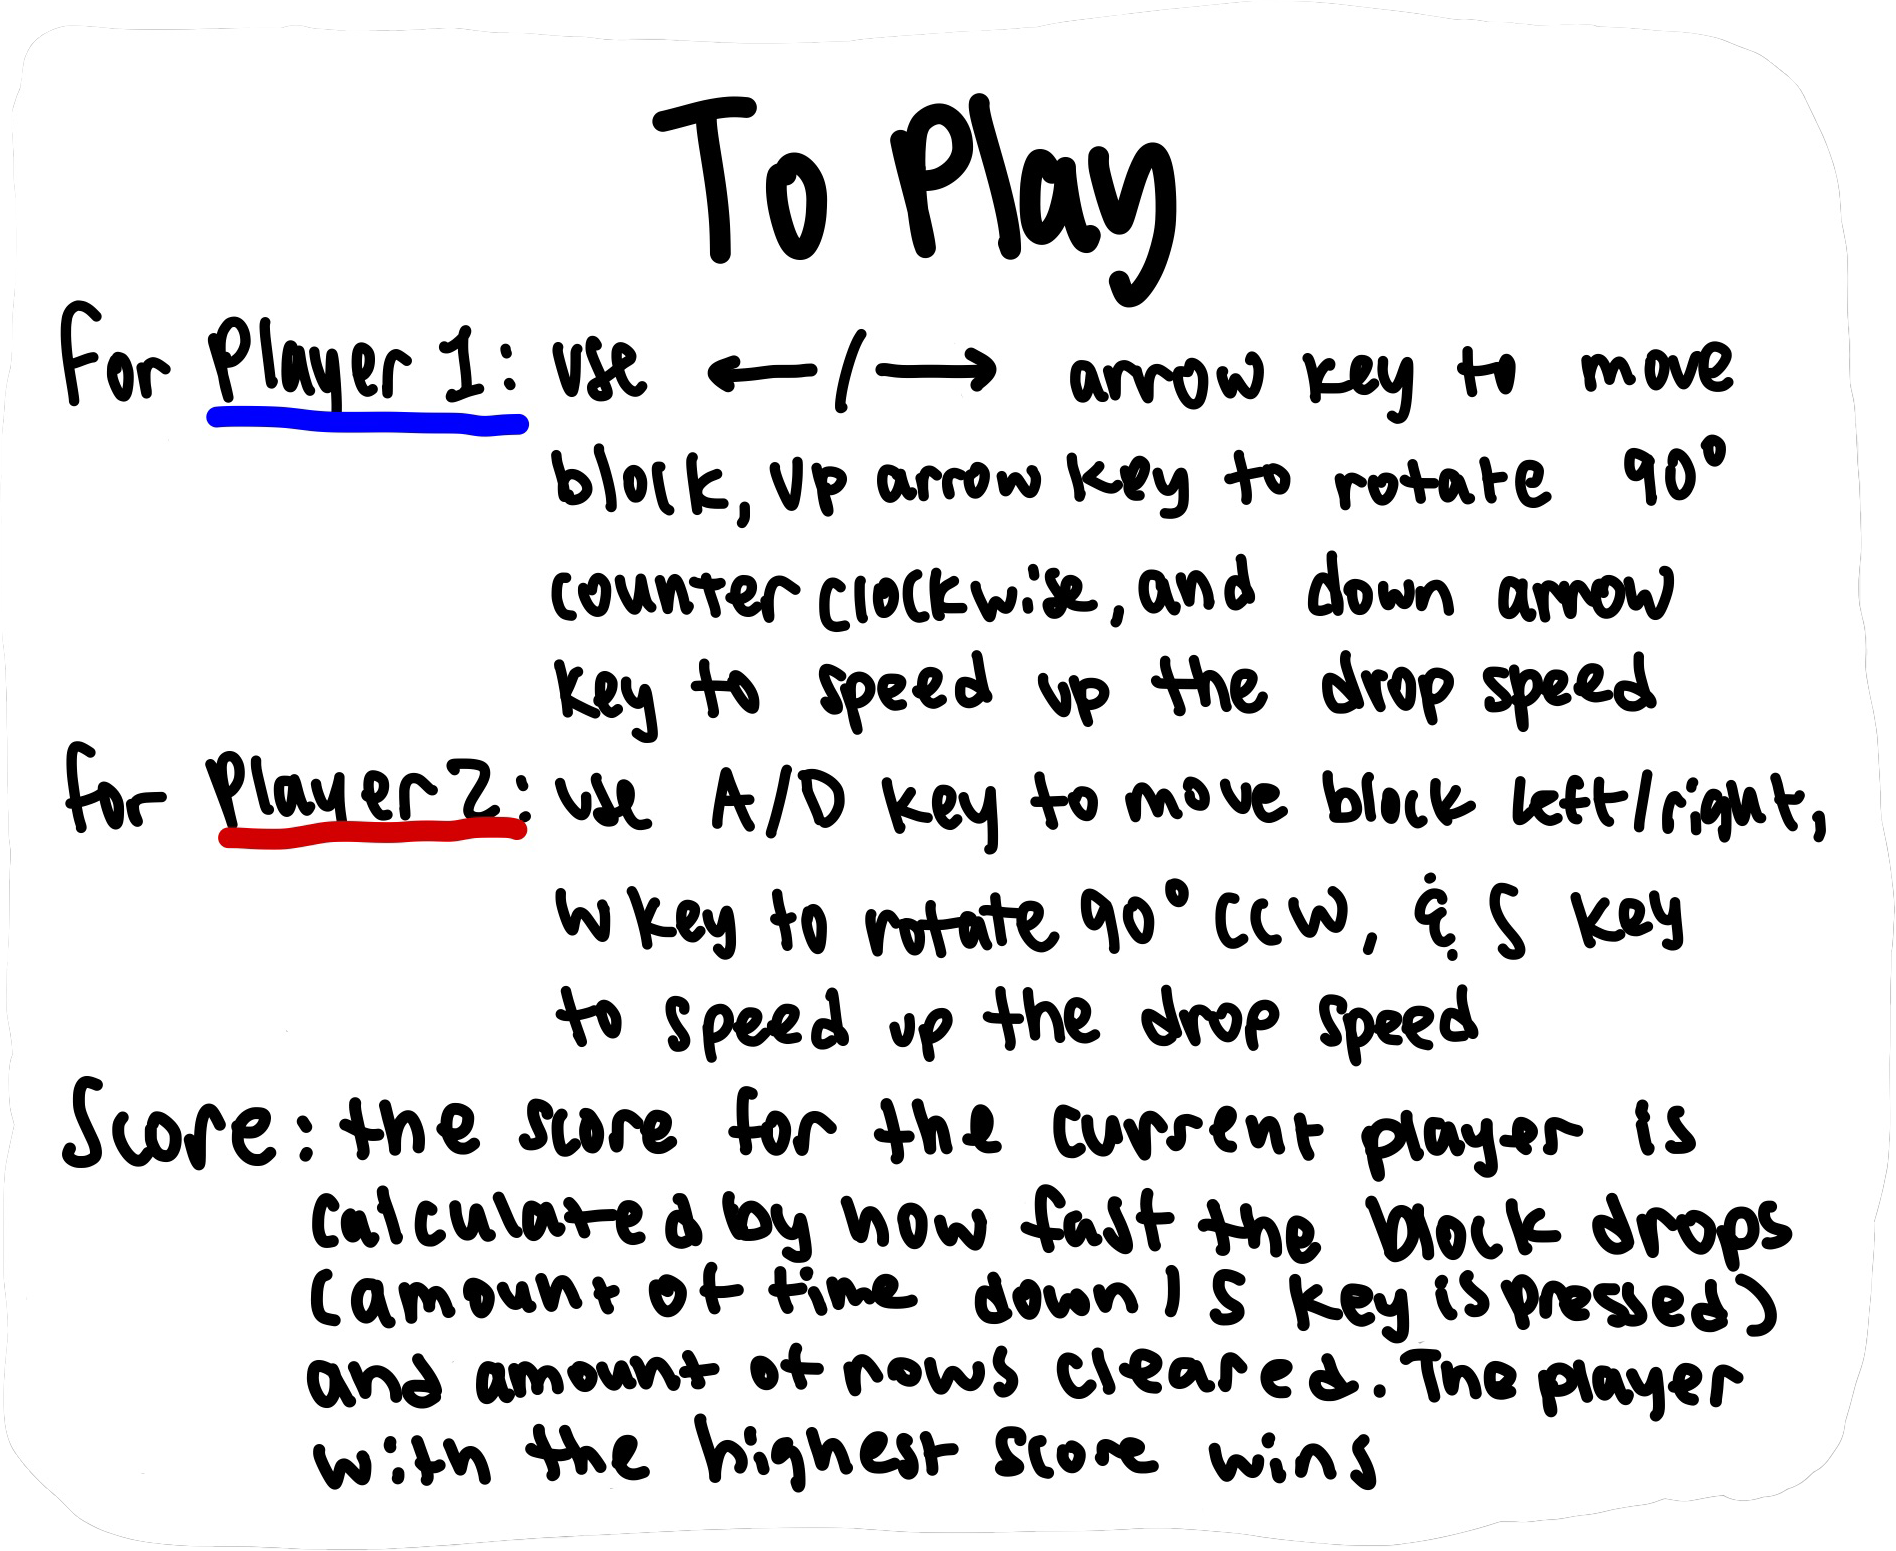 To Play
For Player 1: use ←/→ arrow key to move
block, up arrow key to rotate 90°
counter clockwise, and down arrow
key to speed up the drop speed
for Player 2: use A/D key to move block left/right,
W key to rotate 90° CCW, & S key
to speed up the drop speed
Score: the score for the current player is
calculated by how fast the block drops
(amount of time down / S key is pressed)
and amount of rows cleared. The player
with the highest score wins